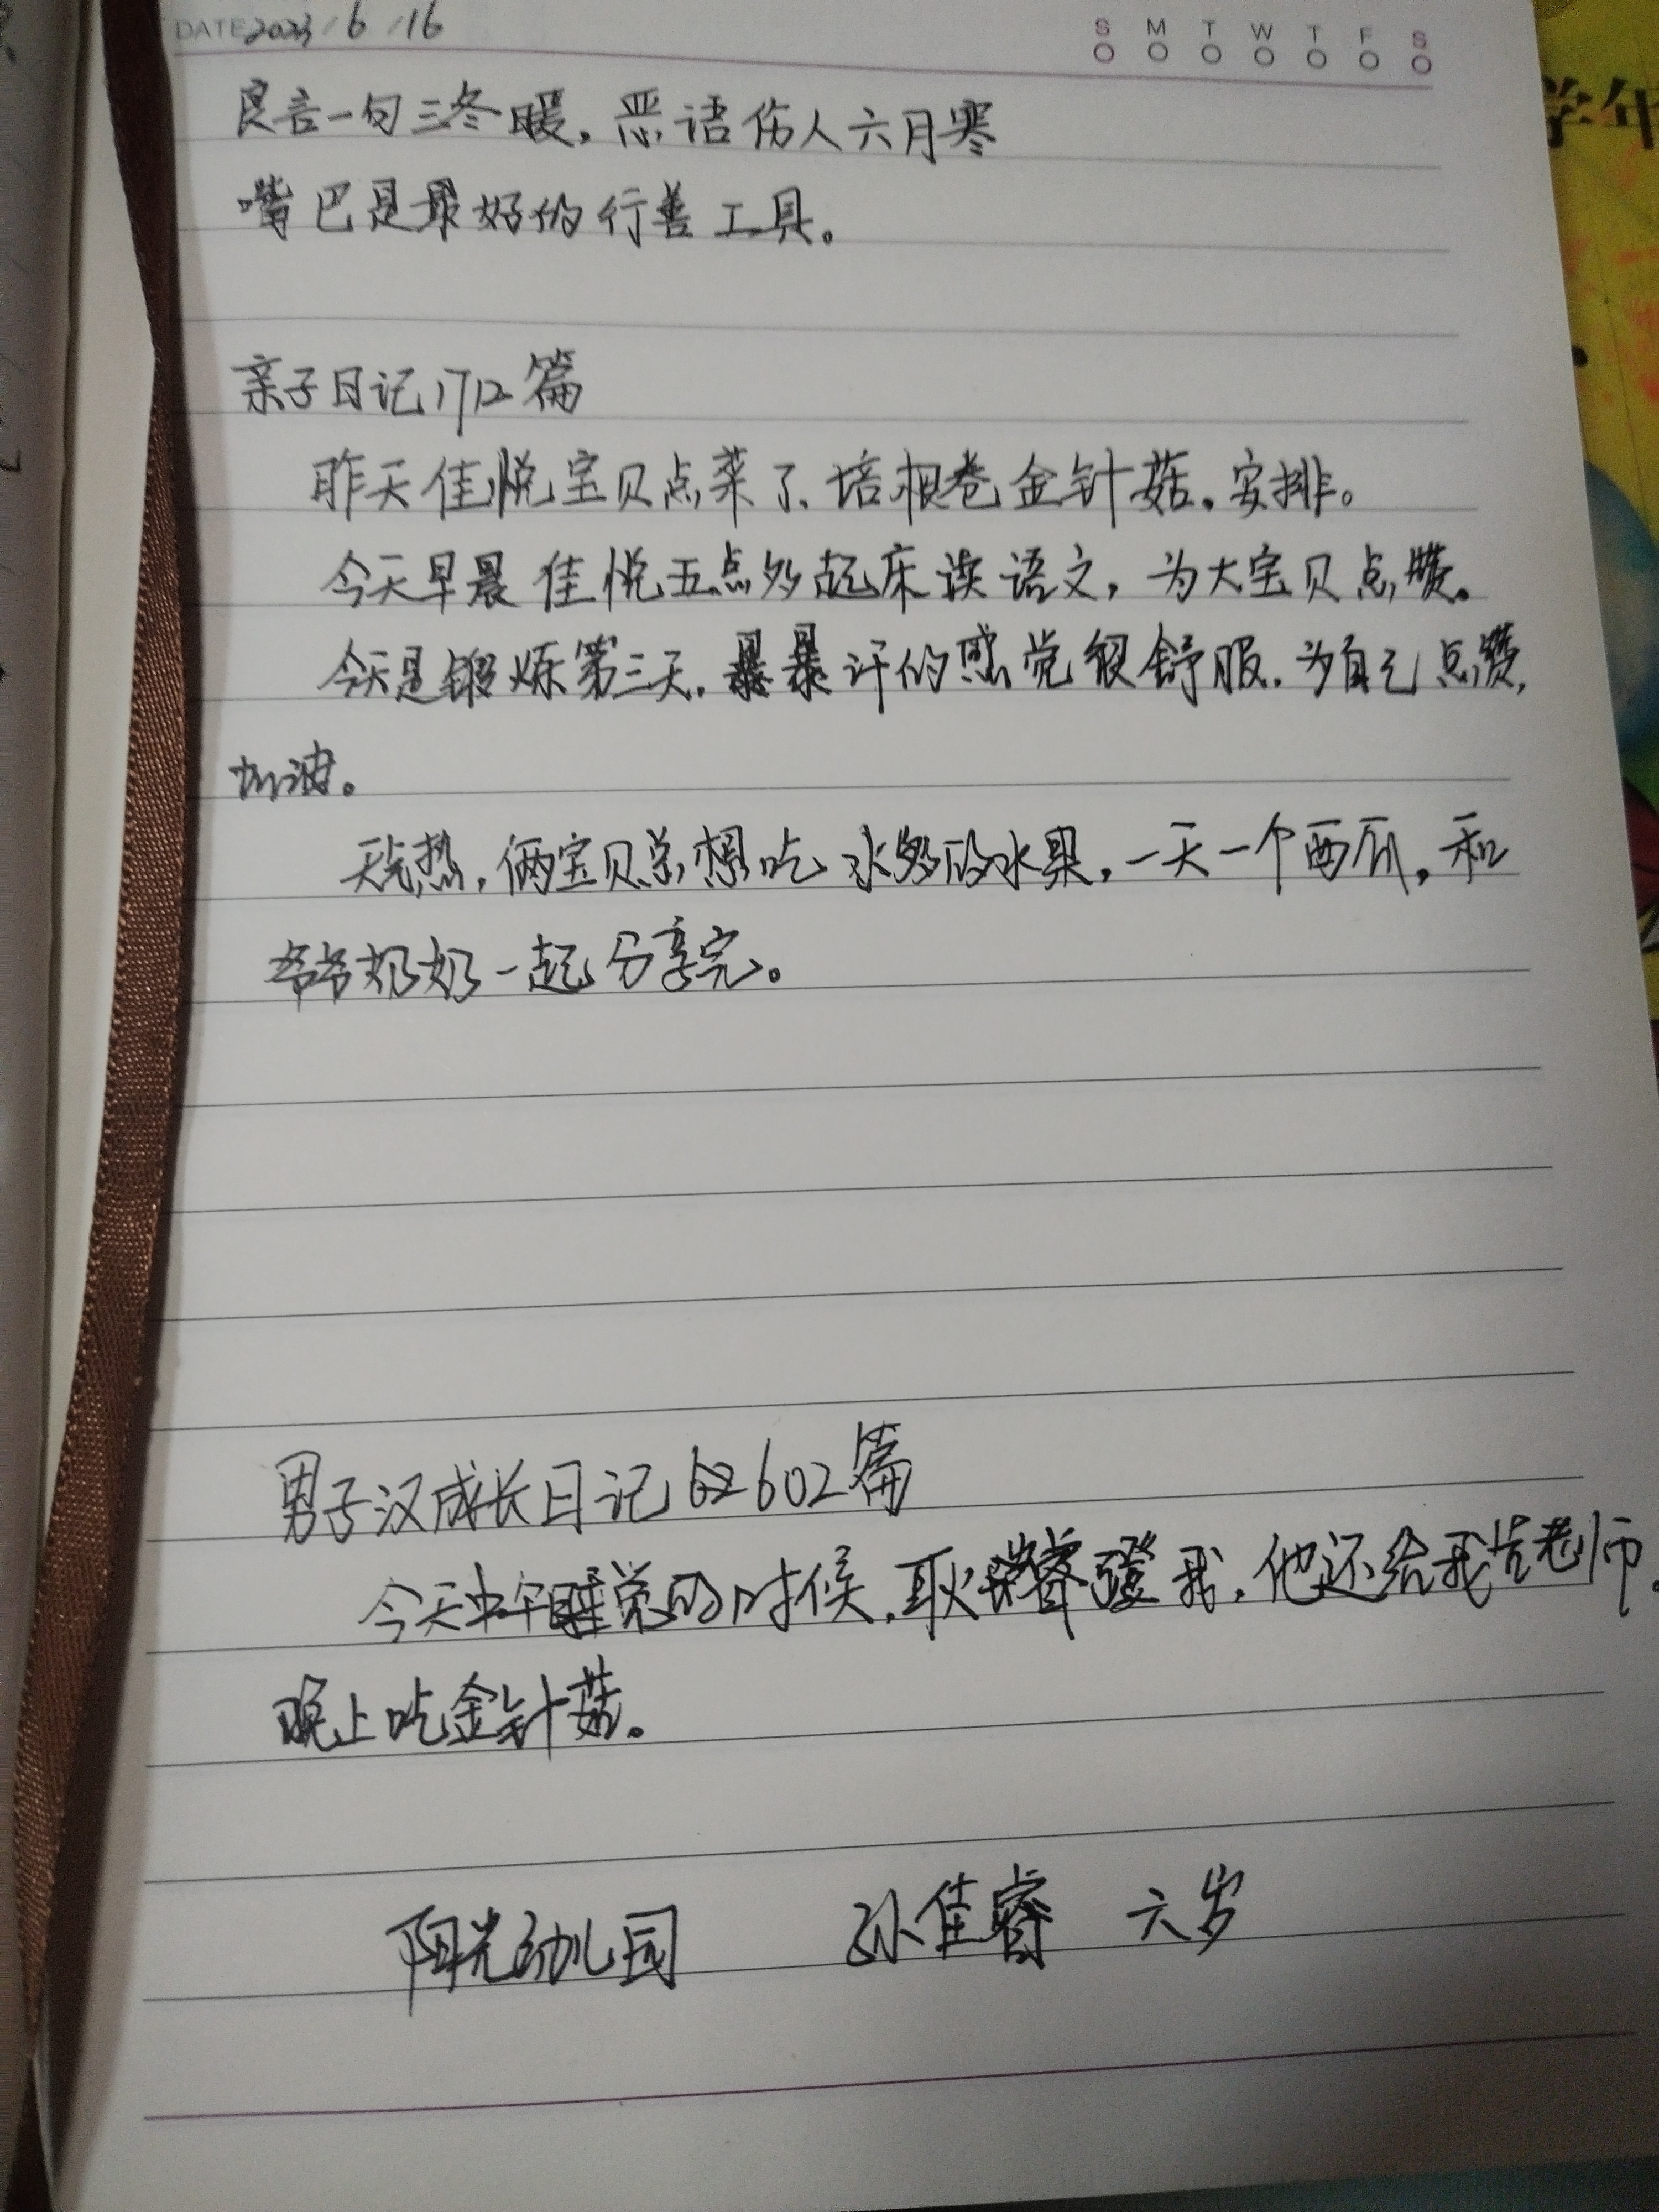 DATE 2023/6/16
S M T W T F S
良言一句三冬暖,恶语伤人六月寒
嘴巴是最好的行善工具。
学年
亲子日记1712篇
昨天佳悦宝贝点菜了.培根卷金针菇.安排。
今天早晨佳悦五点多起床读语文,为大宝贝点赞。
今天是锻炼第三天.暴暴汗的感觉很舒服.为自己点赞,
加油。
天气热,俩宝贝总想吃水多的水果,一天一个西瓜,和
爷爷奶奶一起分享完。
男子汉成长日记602篇
今天中午睡觉的时候,耿 睿 我,他还给我告老师.
晚上吃金针菇。
阳光幼儿园 孙佳睿 六岁